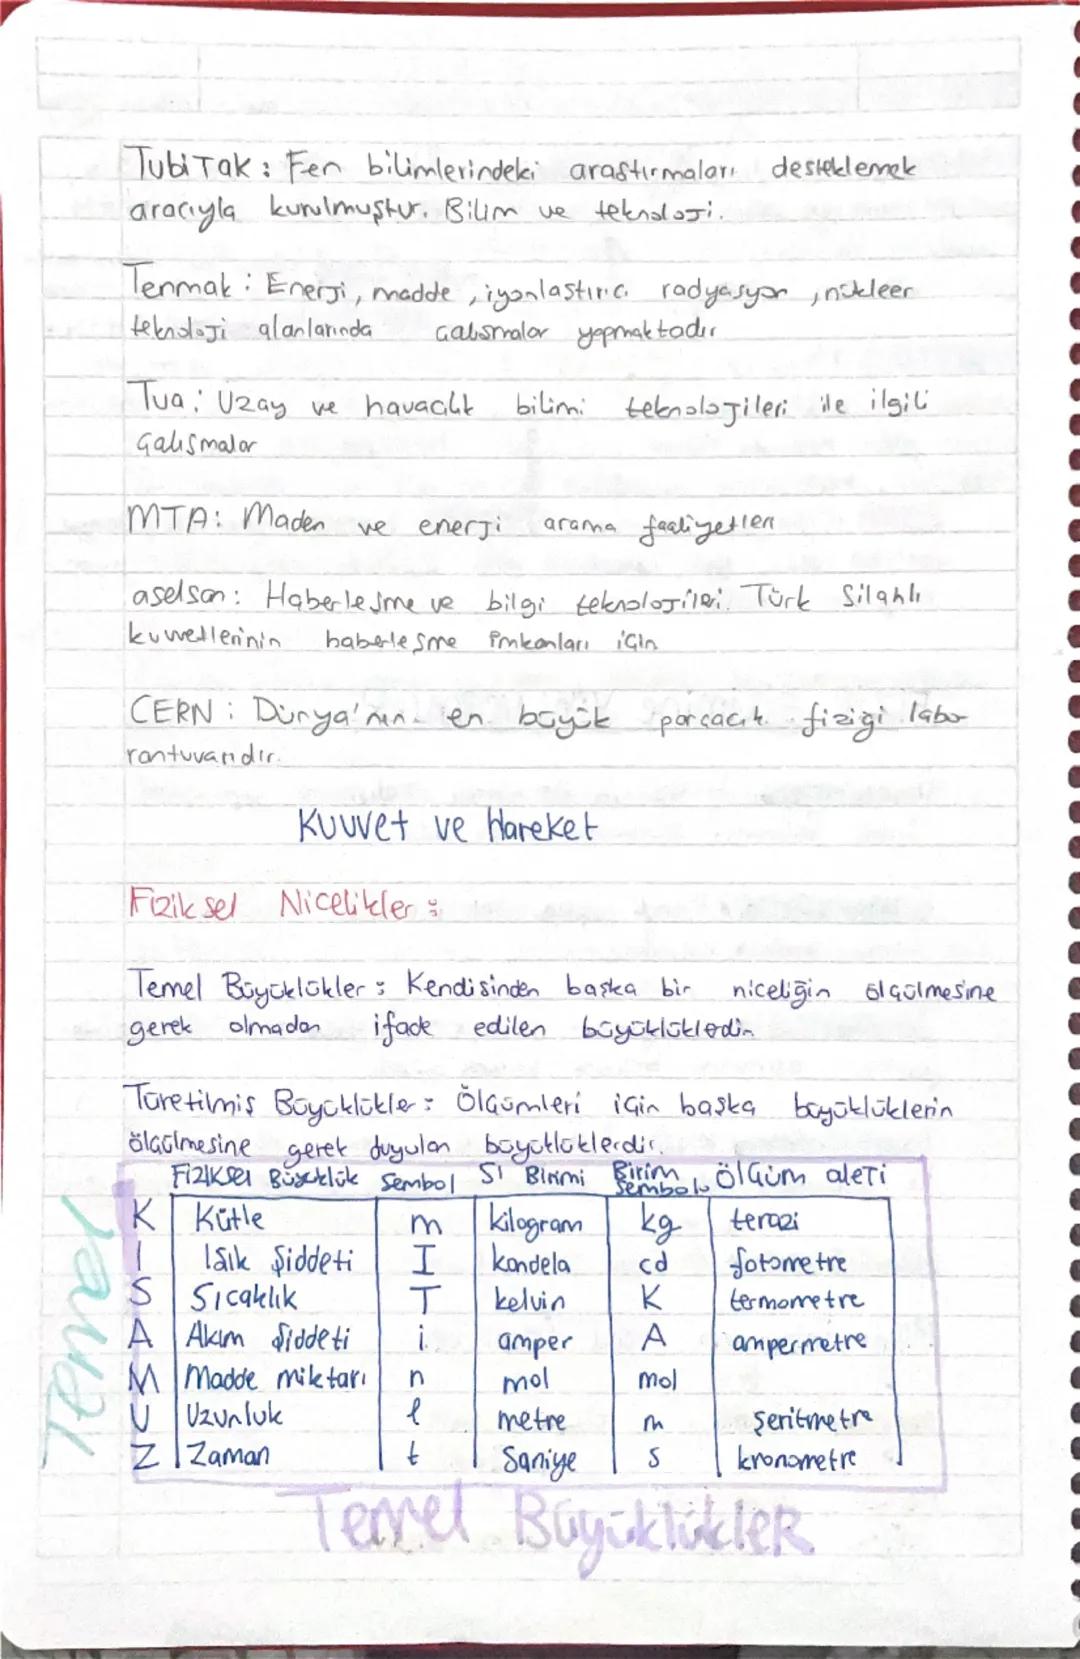 TubiTak : Fen bilimlerindeki araştırmaları desteklemek
aracıyla kurulmuştur. Bilim ve teknoloji.
Tenmak : Enerji, madde , iyonlaştırıcı radyasyon , nükleer
teknoloji alanlarında çalışmalar yapmaktadır
Tua : Uzay ve havacılık bilimi teknolojileri ile ilgili
çalışmalar
MTA : Maden ve enerji arama faaliyetleri
aselsan : Haberleşme ve bilgi teknolojileri. Türk Silahlı
kuvvetlerinin haberleşme imkanları için
CERN : Dünya'nın en büyük parçacık fiziği labo
rantuvarıdır.
Kuvvet ve Hareket
Fiziksel Nicelikler :
Temel Büyüklükler : Kendisinden başka bir niceliğin ölçülmesine
gerek olmadan ifade edilen büyüklüklerdir
Türetilmiş Büyüklükler : Ölçümleri için başka büyüklüklerin
ölçülmesine gerek duyulan büyüklüklerdir.
Fiziksel Büyüklük Sembol SI Birimi Birim Sembolü Ölçüm aleti
K Kütle m kilogram kg terazi
I Işık Şiddeti I kandela cd fotometre
S Sıcaklık T kelvin K termometre
A Akım Şiddeti i amper A ampermetre
M Madde miktarı n mol mol
U Uzunluk l metre m Şeritmetre
Z Zaman t Saniye s kronometre
Temel
Temel Büyüklükler